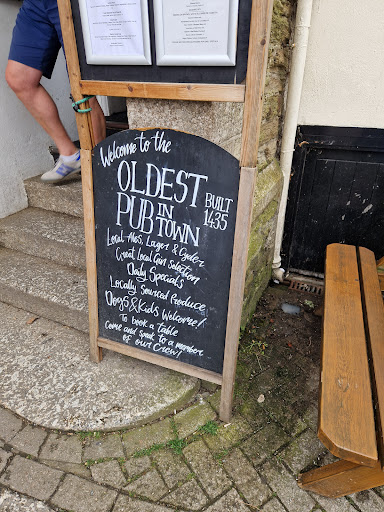 Welcome to the
OLDEST
PUB IN
TOWN
BUILT
1435
Local Ales, Lager & Cyder
Great Local Gin Selection
Daily Specials
Locally Sourced Produce
Dogs & Kids Welcome!
To book a table
come and speak to a member
of our Crew!!